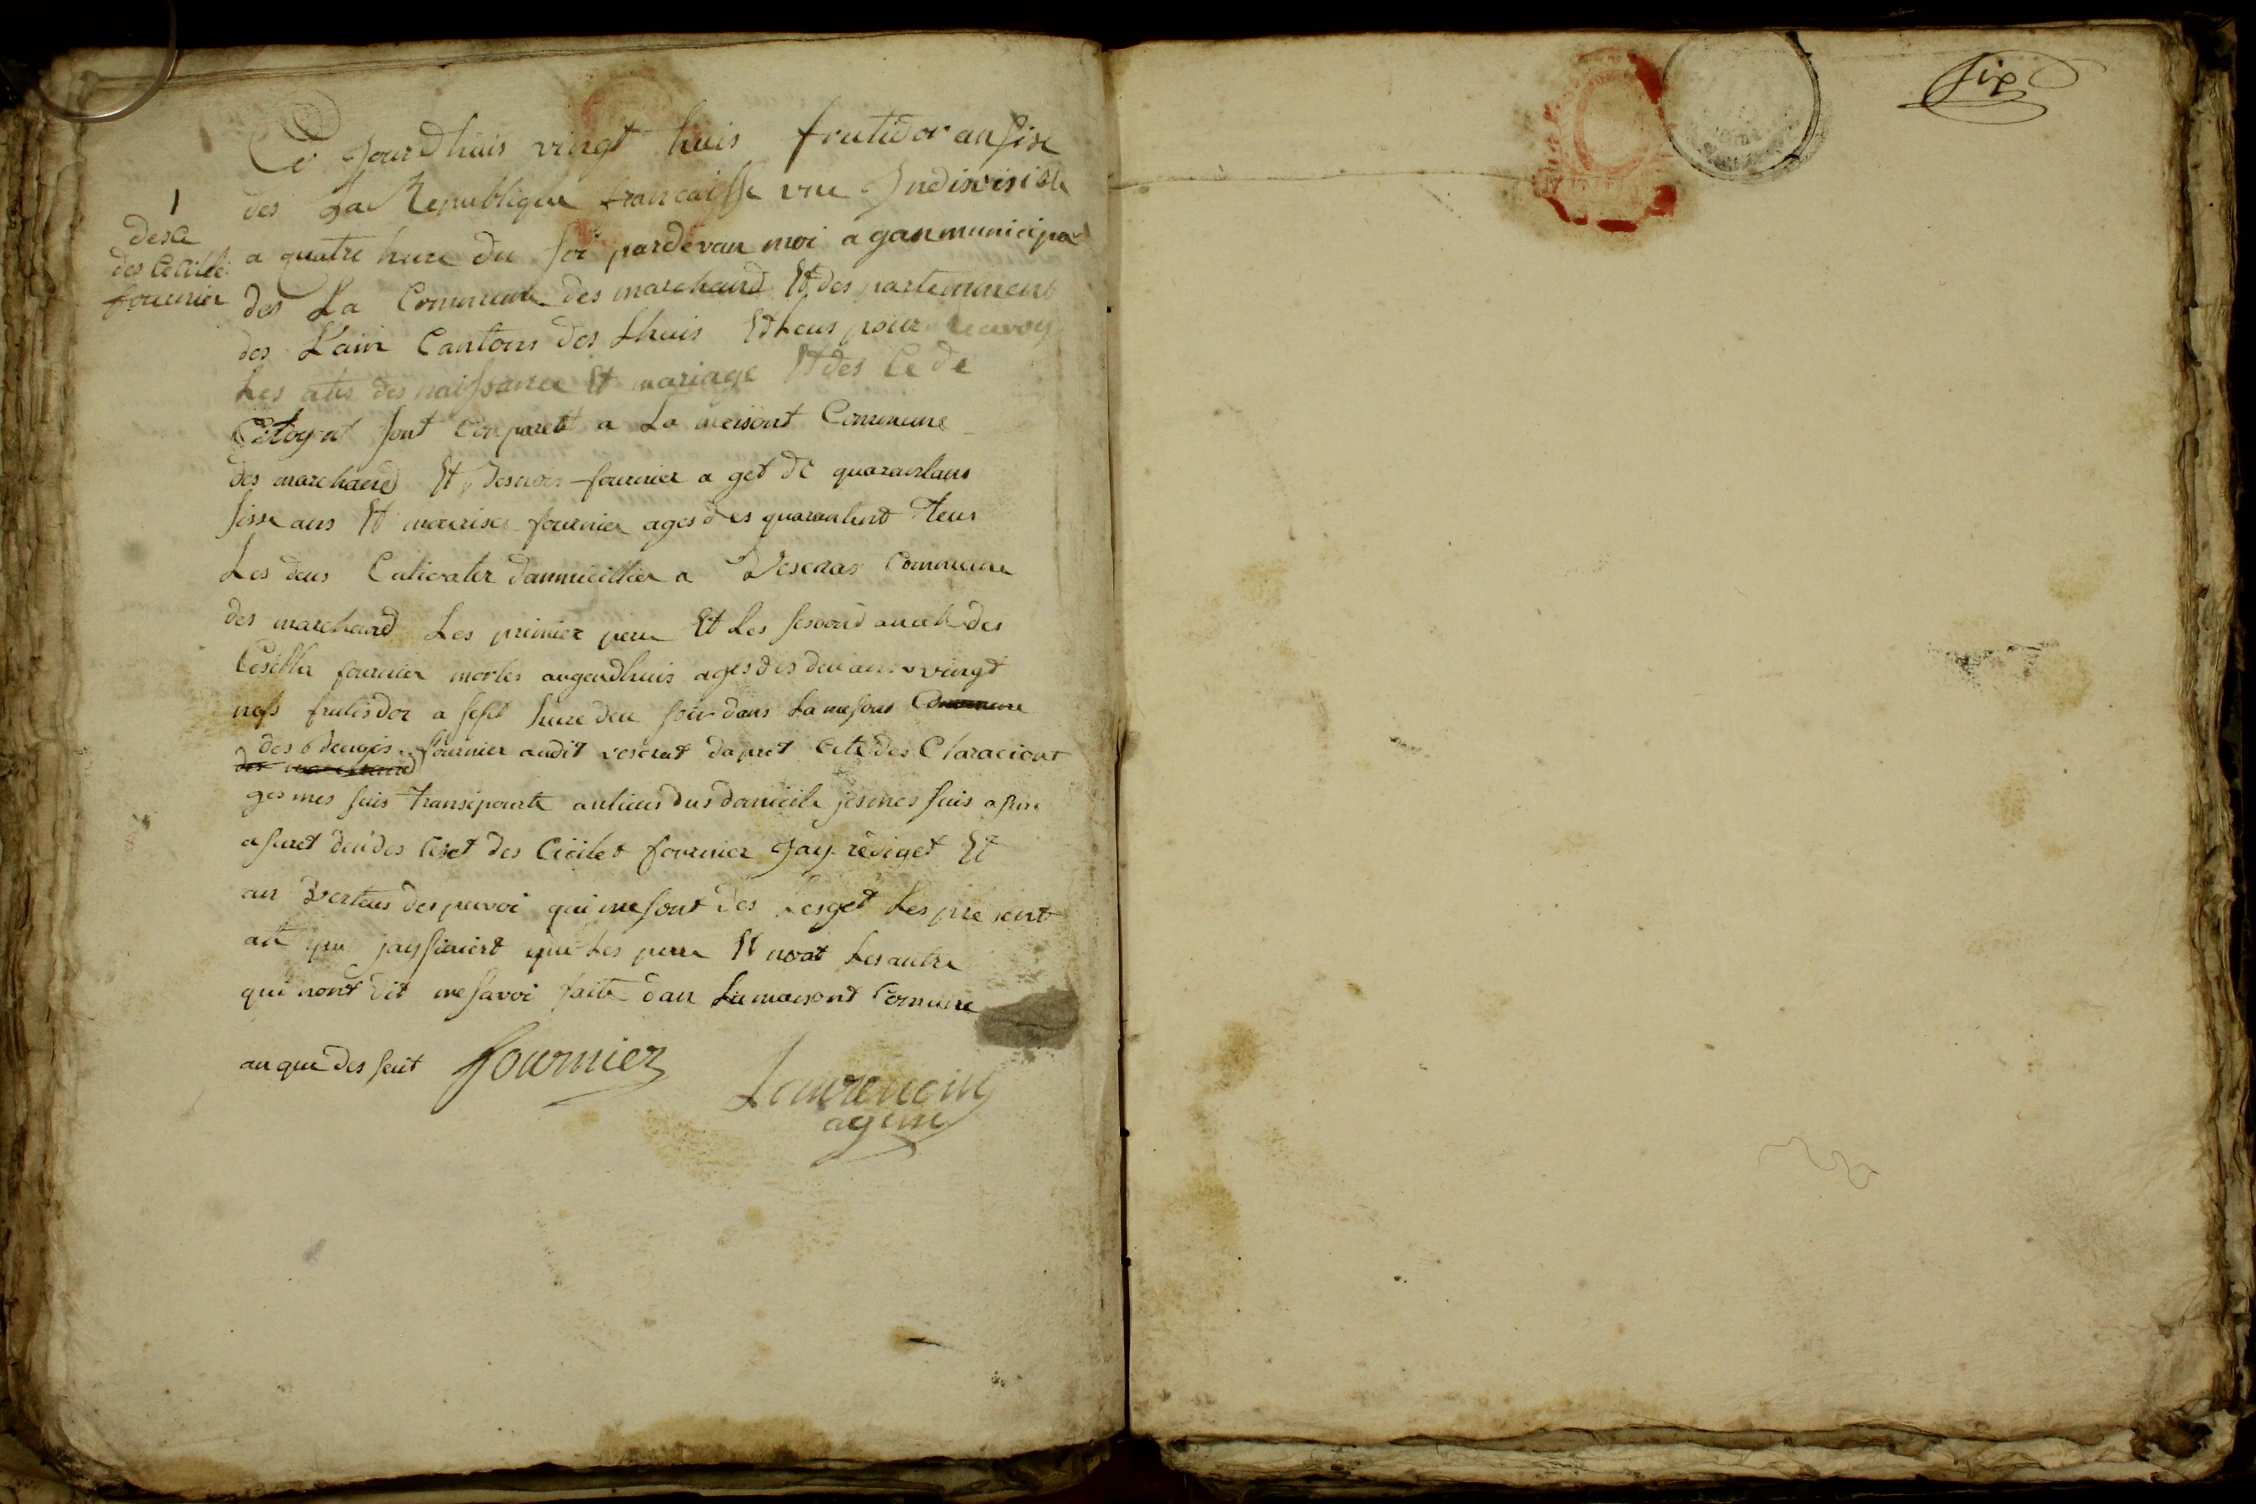 six
1
desce
des Cecille
fournier
Ce jourdhuis vingt huis frutidor an sixe
des La Republique francaisse une Indivisisle
a quatre heure du soi pardevan moi agan municipal
des La Commune des marchand Et des partemment
des L'ain Cantons des Lhuis Eleus pour recevoy
Les ates des naissance Et mariage Et des Ce de
Citoyat sont Conparett a La meisont Commune
des marchand Et fournier a get de quarantans
sisse ans Et mourise fournier ages des quarantent teus
Les deus Cutivater dommicillier a Veseras Commune
des marchand Les primier pere Et Les sesond oncele des
Cesiller fournier mortes augourdhuis ages des deu ans vingt
nefs frutisdor a sept heure deu soir dans La mesons Commune
des marchand
des Beugis fournier audit veserat dapret Cete des Claraciont
ges mes suis transiporte aulieus dus domicile jesmes suis asure
asuret deu des Ceset des Ciciles fournier Jay rediget Et
an Vertus des puvoi qui me sont des Lesget Les present
ate que jay siniert que Les pere Et nont Les autre
qui nont dit me savoi faite dan La maisont Comune
au que des seut fournier
Laurencin
agent